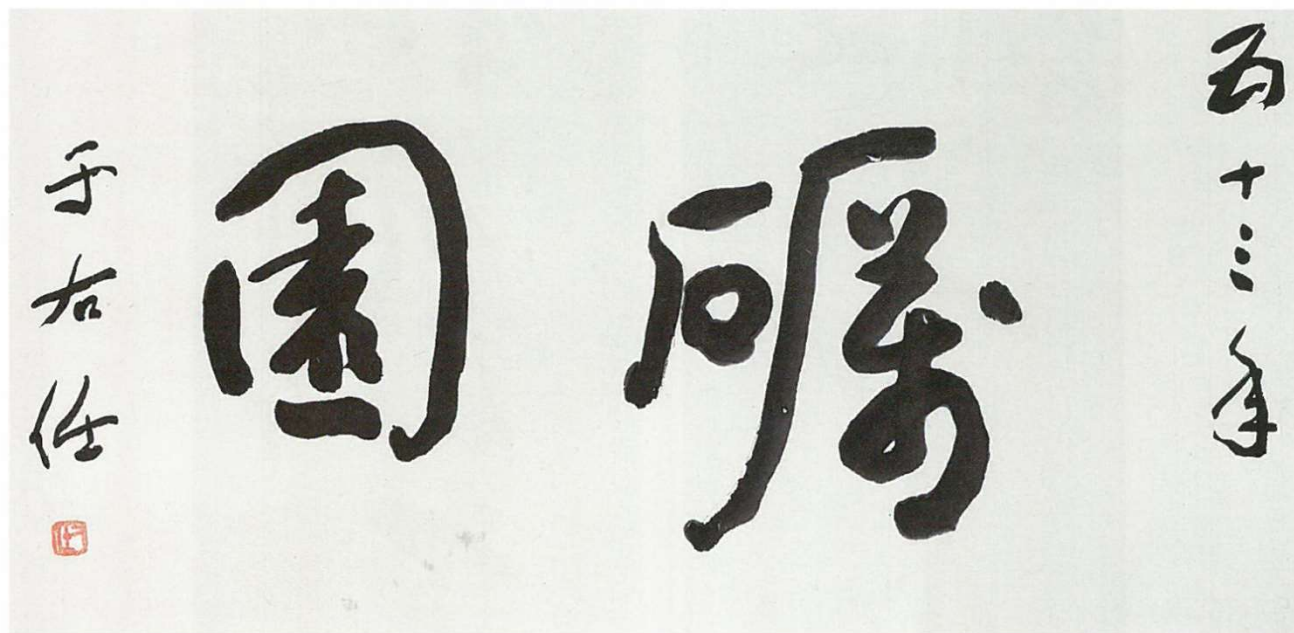 五十三年
礪園
于右任